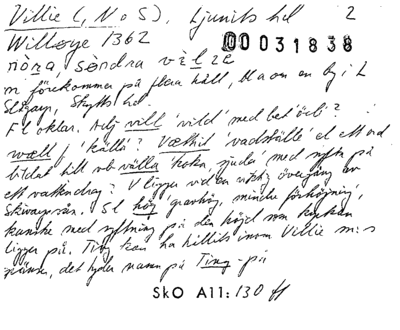 Villie (, N o S), Ljunits hd 2
Willøye 1362 00031838
nöra söndra vilze
m förekommer på flera håll, bl a om en by i L
Slågarp, Skytts hd.
F l oklar. Adj vill 'vild' med bet 'öde'?
wæll f 'källa'? 'vadställe' el ett ord
bildat till vb välla 'koka, sjuda' med syfte på
ett vattendrag? V ligger vid en viktig övergång av
Skivarpsån. Sl hög gravhög, mindre förhöjning,
kanske med syftning på den höjd som kyrkan
ligger på. Ting kan ha hållits inom Villie m:s
gränser, det tyder namn på Ting- på
SkO A11:130 ff